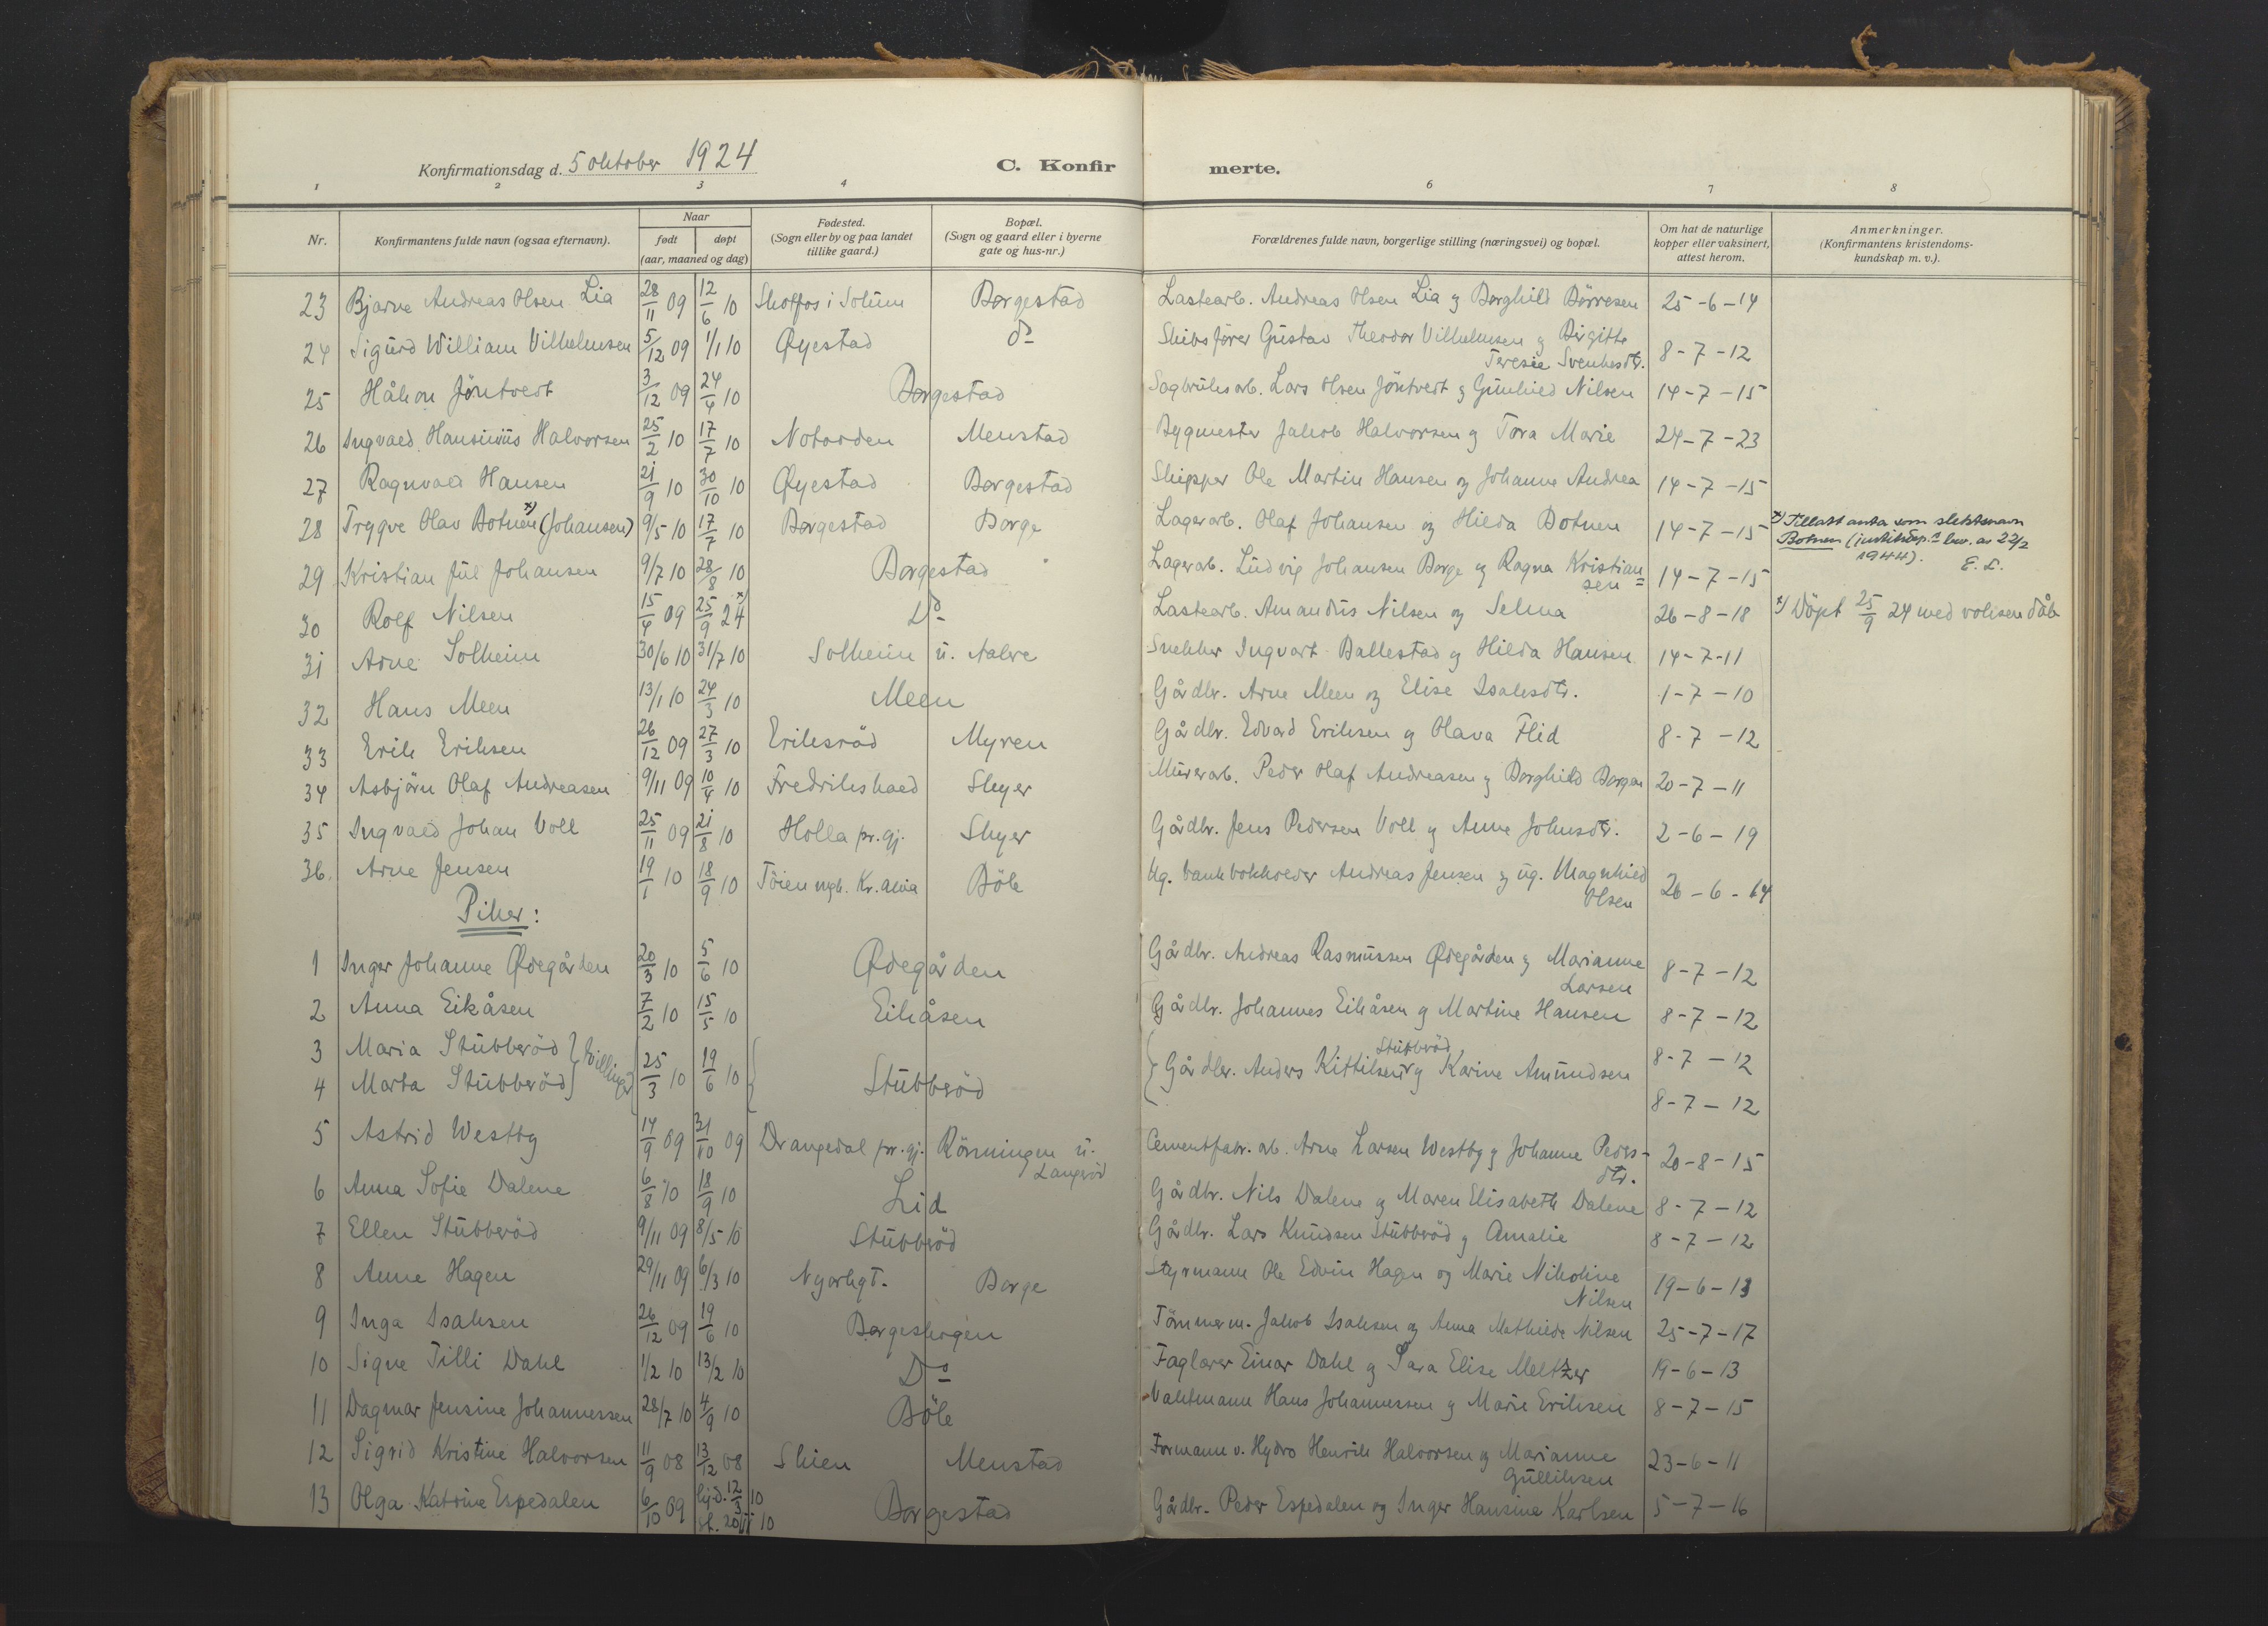 Konfirmationsdag d. 5 oktober 1924
C. Konfirmerte.
1 2 3 4 6 7 8
Nr. Konfirmantens fulde navn (ogsaa efternavn). Naar født døpt (aar, maaned og dag) Fødested. (Sogn eller by og paa landet tillike gaard.) Bopæl. (Sogn og gaard eller i byerne gate og hus-nr.) Forældrenes fulde navn, borgerlige stilling (næringsvei) og bopæl. Om hat de naturlige kopper eller vaksinert, attest herom. Anmerkninger. (Konfirmantens kristendomskundskap m. v.).
23 Bjarne Andreas Olsen Lia 28/11 09 12/6 10 Skotfos i Solum Borgestad Lastearb. Andreas Olsen Lia og Borghild Börresen 25-6-14
24 Sigurd William Vilhelmsen 5/12 09 1/1 10 Øyestad do Skibsfører Gustav Theodor Vilhelmsen og Birgitte
Teresie Svenkesdtr. 8-7-12
25 Håkon Jöntvedt 3/12 09 24/4 10 Borgestad Sagbruksarb. Lars Olsen Jöntvedt og Gunhild Nilsen 14-7-15
26 Ingvald Hansinius Halvorsen 25/2 10 17/7 10 Notodden Menstad Bygmester Jakob Halvorsen og Tora Marie 24-7-23
27 Ragnvald Hansen 21/9 10 30/10 10 Øyestad Borgestad Skipper Ole Martin Hansen og Johanne Andrea 14-7-15
28 Trygve Olav Botnen x) (Johansen) 9/5 10 17/7 10 Borgestad Borge Lagerarb. Olaf Johansen og Hilda Botnen 14-7-15 x) Tillatt anta som slektsnavn
Botnen (justitsdep.s bev. av 22/2
1944). E. L.
29 Kristian Jul Johansen 9/7 10 28/8 10 Borgestad Lagerarb. Ludvig Johansen Borge og Ragna Kristian=
sen 14-7-15
30 Rolf Nilsen 15/4 09 25/9 24 x) Do Lastearb. Amandus Nilsen og Selma 26-8-18 x) Döpt 25/9 24 med voksen dåb
31 Arne Solheim 30/6 10 31/7 10 Solheim u. Aakre Snekker Ingvart Ballestad og Hilda Hansen 14-7-11
32 Hans Meen 13/1 10 24/3 10 Meen Gårdbr. Arne Meen og Elise Isaksdtr. 1-7-10
33 Erik Eriksen 26/12 09 27/3 10 Eriksröd Myren Gårdbr. Edvard Eriksen og Olava Flid 8-7-12
34 Asbjörn Olaf Andreasen 9/11 09 10/4 10 Fredrikshald Skyer Murerarb. Peder Olaf Andreasen og Borghild Borgan 20-7-11
35 Ingvald Johan Voll 25/11 09 21/8 10 Holla pr.gj. Skyer Gårdbr. Jens Pedersen Voll og Anne Johnsdtr. 2-6-19
36. Arne Jensen 19/1 10 18/9 10 Töien mgh. Kr.ania Böle Ug. bankbokholder Andreas Jensen og ug. Magnhild
Olsen 26-6-14
Piker:
1 Inger Johanne Ødegården 20/3 10 5/6 10 Ødegården Gårdbr. Andreas Rasmussen Ødegården og Marianne
Larsen 8-7-12
2 Anna Eikåsen 7/2 10 15/5 10 Eikåsen Gårdbr. Johannes Eikåsen og Martine Hansen 8-7-12
3 Maria Stubberöd } tvillinger 25/3 10 19/6 10 Stubberöd Gårdbr. Anders Kittilsen Stubberöd og Karine Amundsen 8-7-12
4 Marta Stubberöd 8-7-12
5 Astrid Westby 14/9 09 31/10 09 Drangedal pr.gj. Rönningen u.
Langröd Cementfabr. arb. Arne Larsen Westby og Johanne Peders-
dtr. 20-8-15
6 Anna Sofie Dalene 6/8 10 18/9 10 Lid Gårdbr. Nils Dalene og Maren Elisabeth Dalene 8-7-12
7 Ellen Stubberöd 9/11 09 8/5 10 Stubberöd Gårdbr. Lars Knudsen Stubberöd og Amalie 8-7-12
8 Anne Hagen 29/11 09 6/3 10 Nyorkgt. Borge Styrmann Ole Edvin Hagen og Marie Nikoline
Nilsen 19-6-13
9 Inga Isaksen 26/12 09 19/6 10 Borgeskogen Tömmerm. Jakob Isaksen og Anna Mathilde Nilsen 25-7-17
10 Signe Tilli Dahl 1/2 10 13/2 10 Do Faglærer Einar Dahl og Sara Elise Meltzer 19-6-13
11 Dagmar Jensine Johannessen 28/7 10 4/9 10 Böle Vaktmann Hans Johannessen og Marie Eriksen 8-7-15
12 Sigrid Kristine Halvorsen 11/9 08 13/12 08 Skien Menstad Formann v. Hydro Henrik Halvorsen og Marianne
Gulliksen 23-6-11
13 Olga Katrine Espedalen 6/10 09 hjd. 12/3 10 Borgestad Gårdbr. Peder Espedalen og Inger Hansine Karlsen 5-7-16